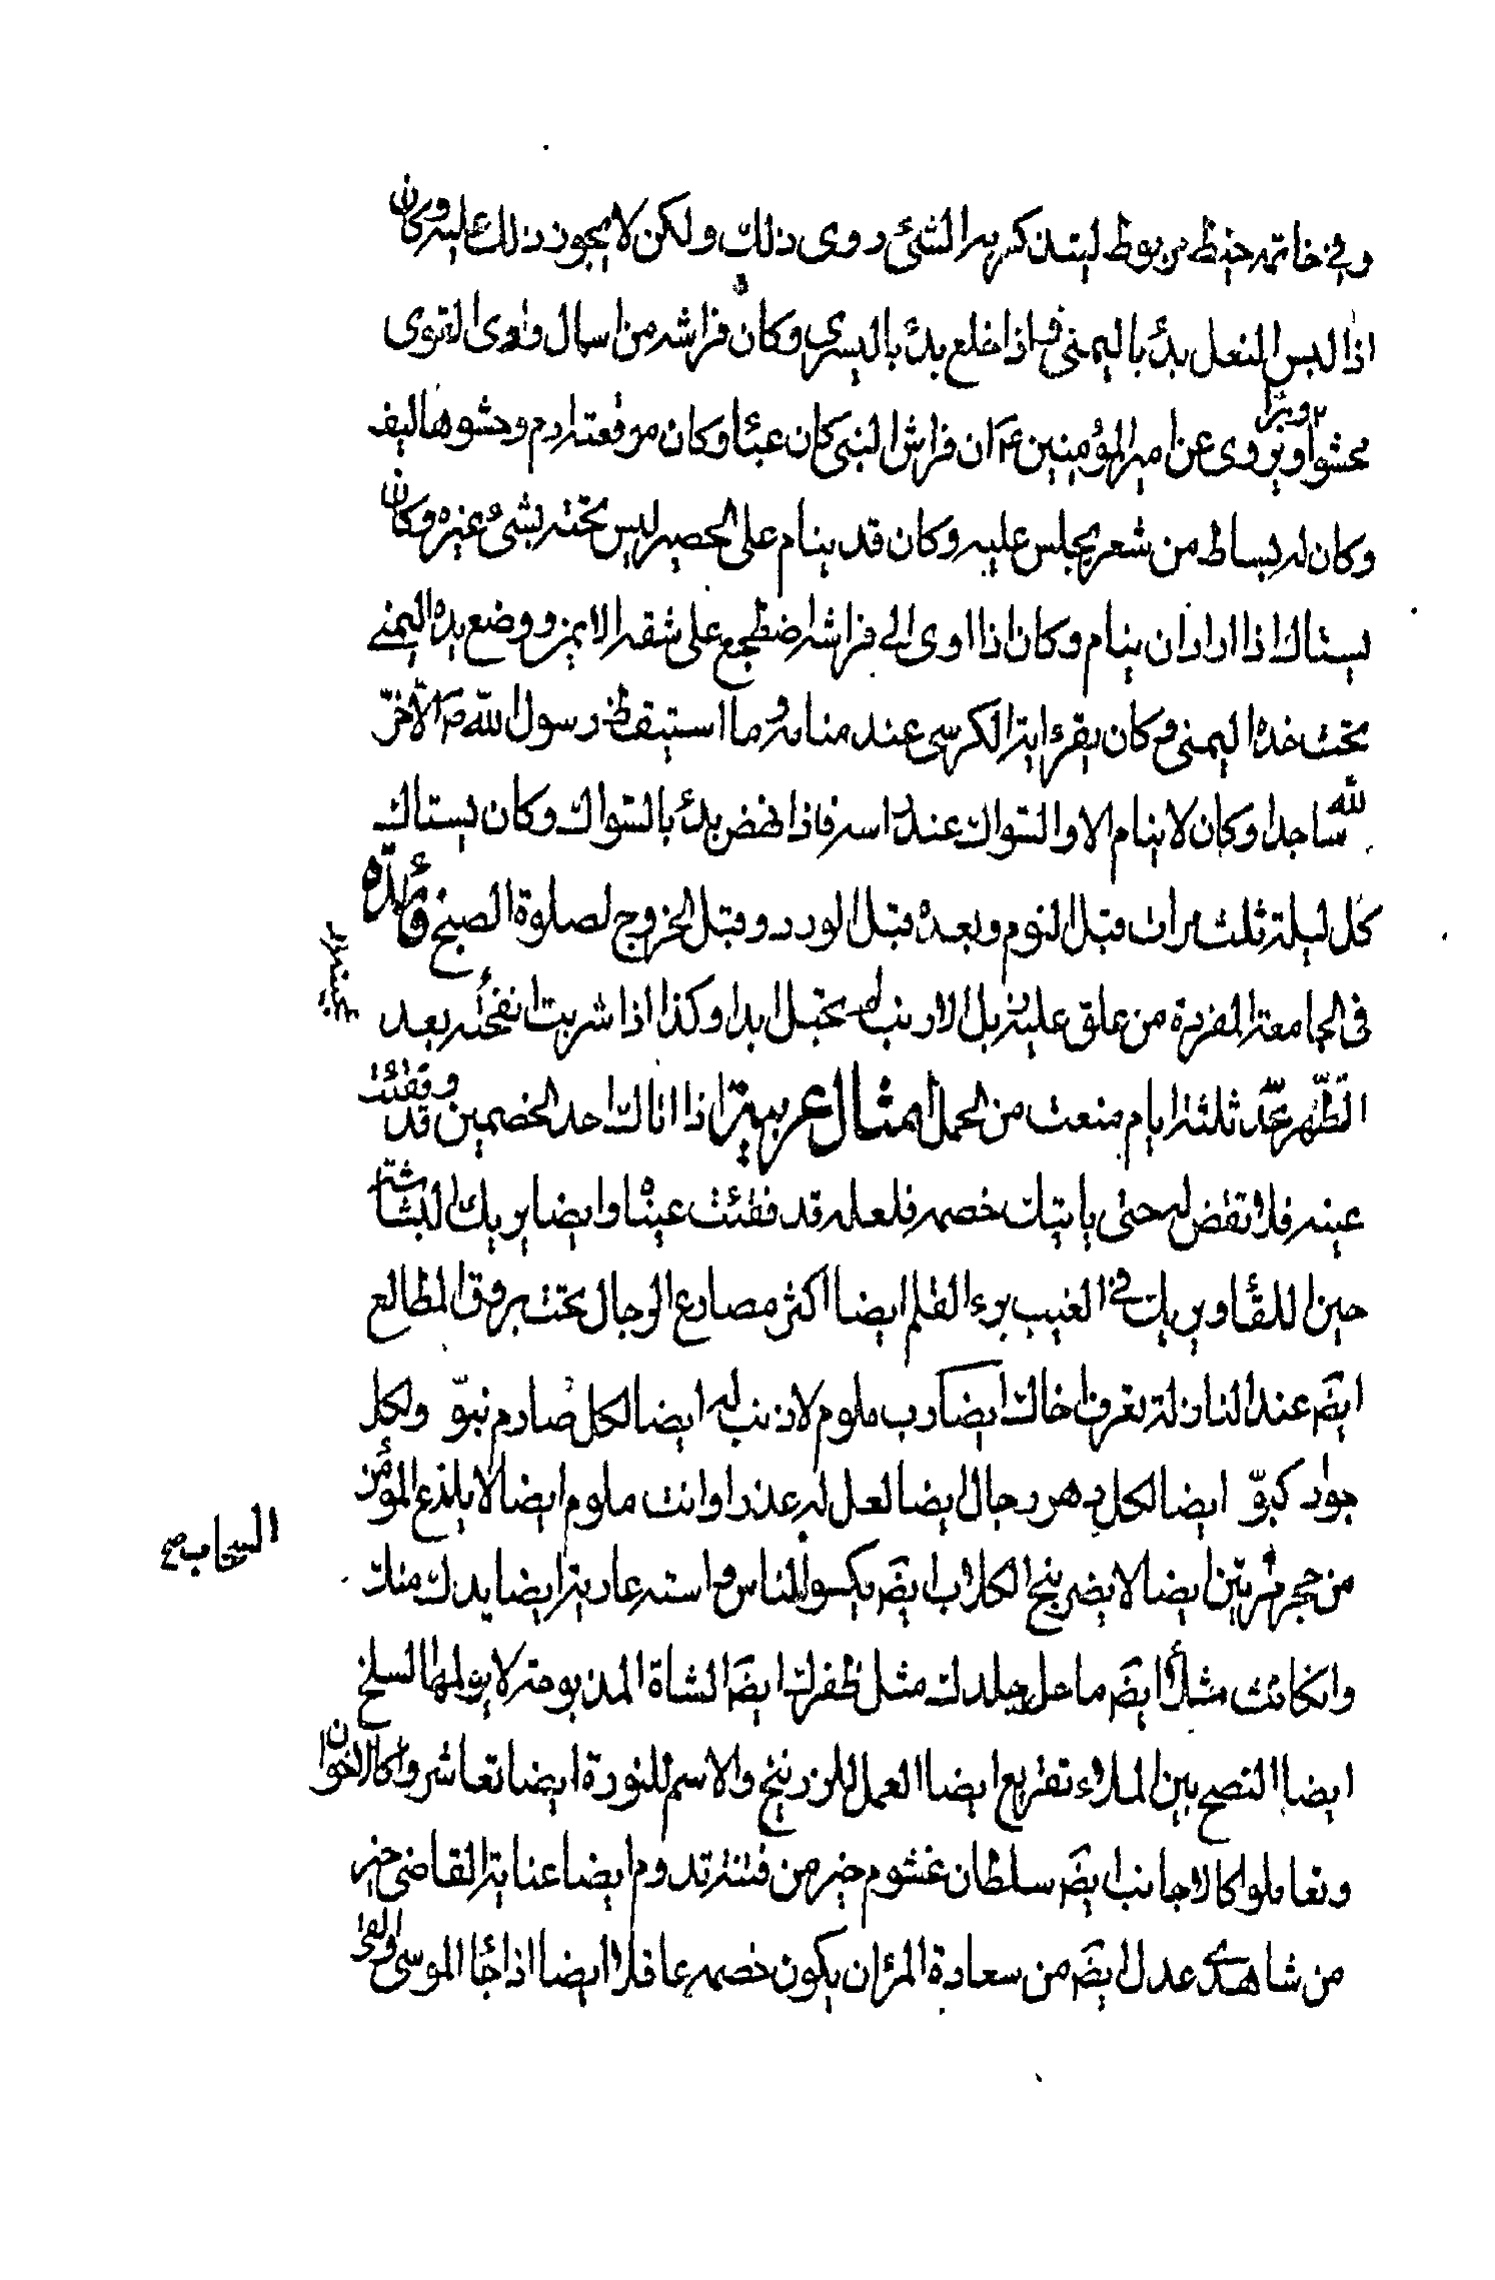 وفي خاتمه خيط مربوط ليتذكر به الشئ روى ذلك ولكن لا يجوز ذلك عليه وكان
اذا لبس النعل بدئ باليمنى واذا خلع بدئ باليسرى وكان فراشه من اسمال وادى القوى
محشوا وبرا ويروى عن امير المؤمنين ع ان فراش النبى كان عبئا وكان مرفقته ادم وحشوها ليف
وكان له بساط من شعر يجلس عليه وكان قد ينام على الحصير ليس تحته بشئ غيره وكان
يستاك اذا اراد ان ينام وكان اذا اوى الى فراشه اضطجع على شقه الايمن ووضع يده اليمنى
تحت خده اليمنى وكان يقرء اية الكرسى عند منامه وما استيقظ رسول الله ص الا خرّ
لله ساجدا وكان لا ينام الا والسواك عند راسه فاذا نهض بدئ بالسواك وكان يستاك
كل ليلة ثلث مرات قبل النوم وبعده قبل الورد وقبل الخروج لصلوة الصبح فائدة
فى الجامعة المفردة من علق عليه زبل الارنب لم تحبل ابدا وكذا اذا شربت انفحته بعد
الطّهر عدّ ثلثة ايام منعت من الحمل امثال عربية اذا اتاك احد الخصمين وقد فقئت
عينه فلا تقض له حتى ياتيك خصمه فلعله قد فقئت عيناه وايضا يريك البشاشة
حين اللقاء ويريك فى الغيب برء القلم ايضا اكثر مصارع الرجال تحت بروق المطالع
ايضَ عند النازلة تعرف اخاك ايضا رب ملوم لا ذنب له ايضا لكل صارم نبوّ ولكل
جواد كبوّ ايضا لكل دهر رجال ايضا لعل له عذرا وانت ملوم ايضا لا يلذع المؤمن
من حجر مرتين ايضا لا يضر نبح الكلاب ايضَ يكسو الناس واسته عارية ايضا يدك منك
السحاب صح
وانكانت شلا ايضَ ما حل جلدك مثل ظفرك ايضَ الشاة المذبوحة لا يؤلمها السلخ
ايضا النصح بين الملاء تقريع ايضا العمل للزرنيخ والاسم للنورة ايضا تعاشروا كالاخوان
وتعاملوا كالاجانب ايضَ سلطان غشوم خير من فتنة تدوم ايضا عناية القاضى خير
من شاهدى عدل ايضَ من سعادة المرء ان يكون خصمه عاقلا ايضا اذا جا الموسى والقى